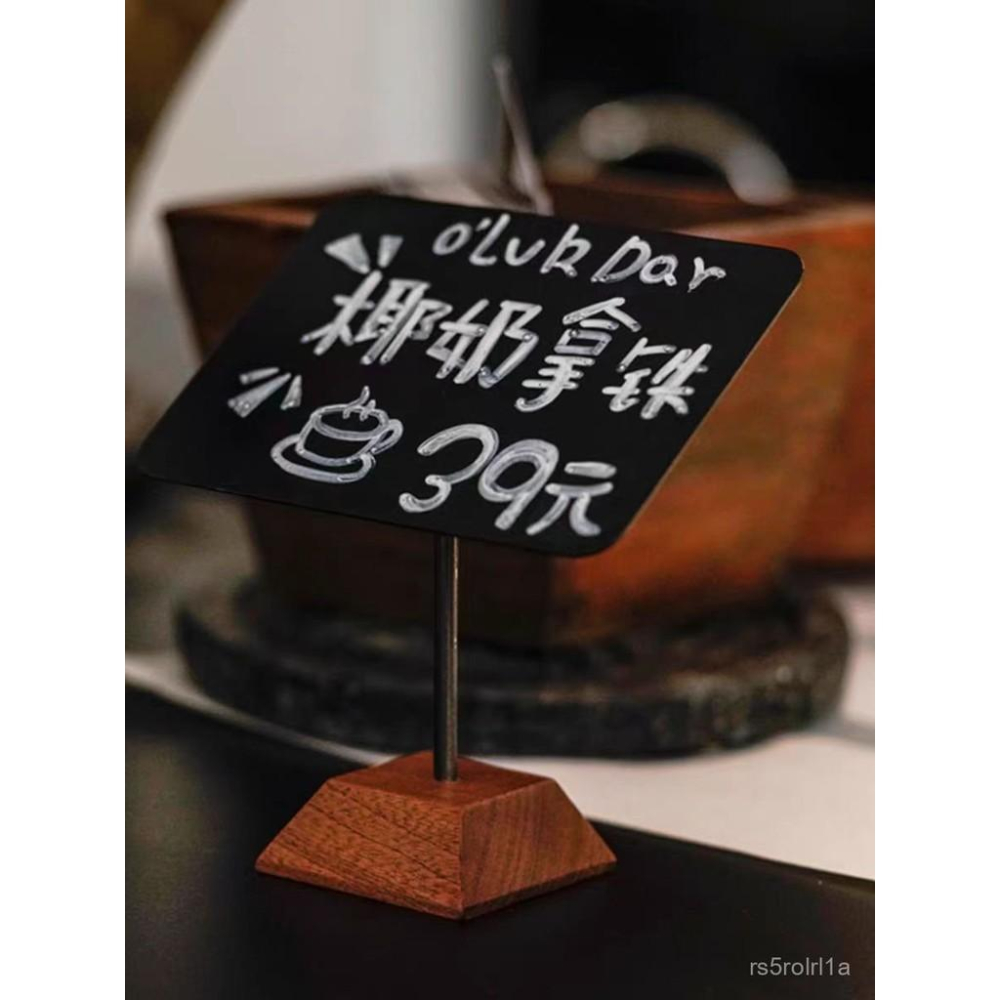 o'Luk Day
椰奶拿铁
39元
rs5rolrl1a